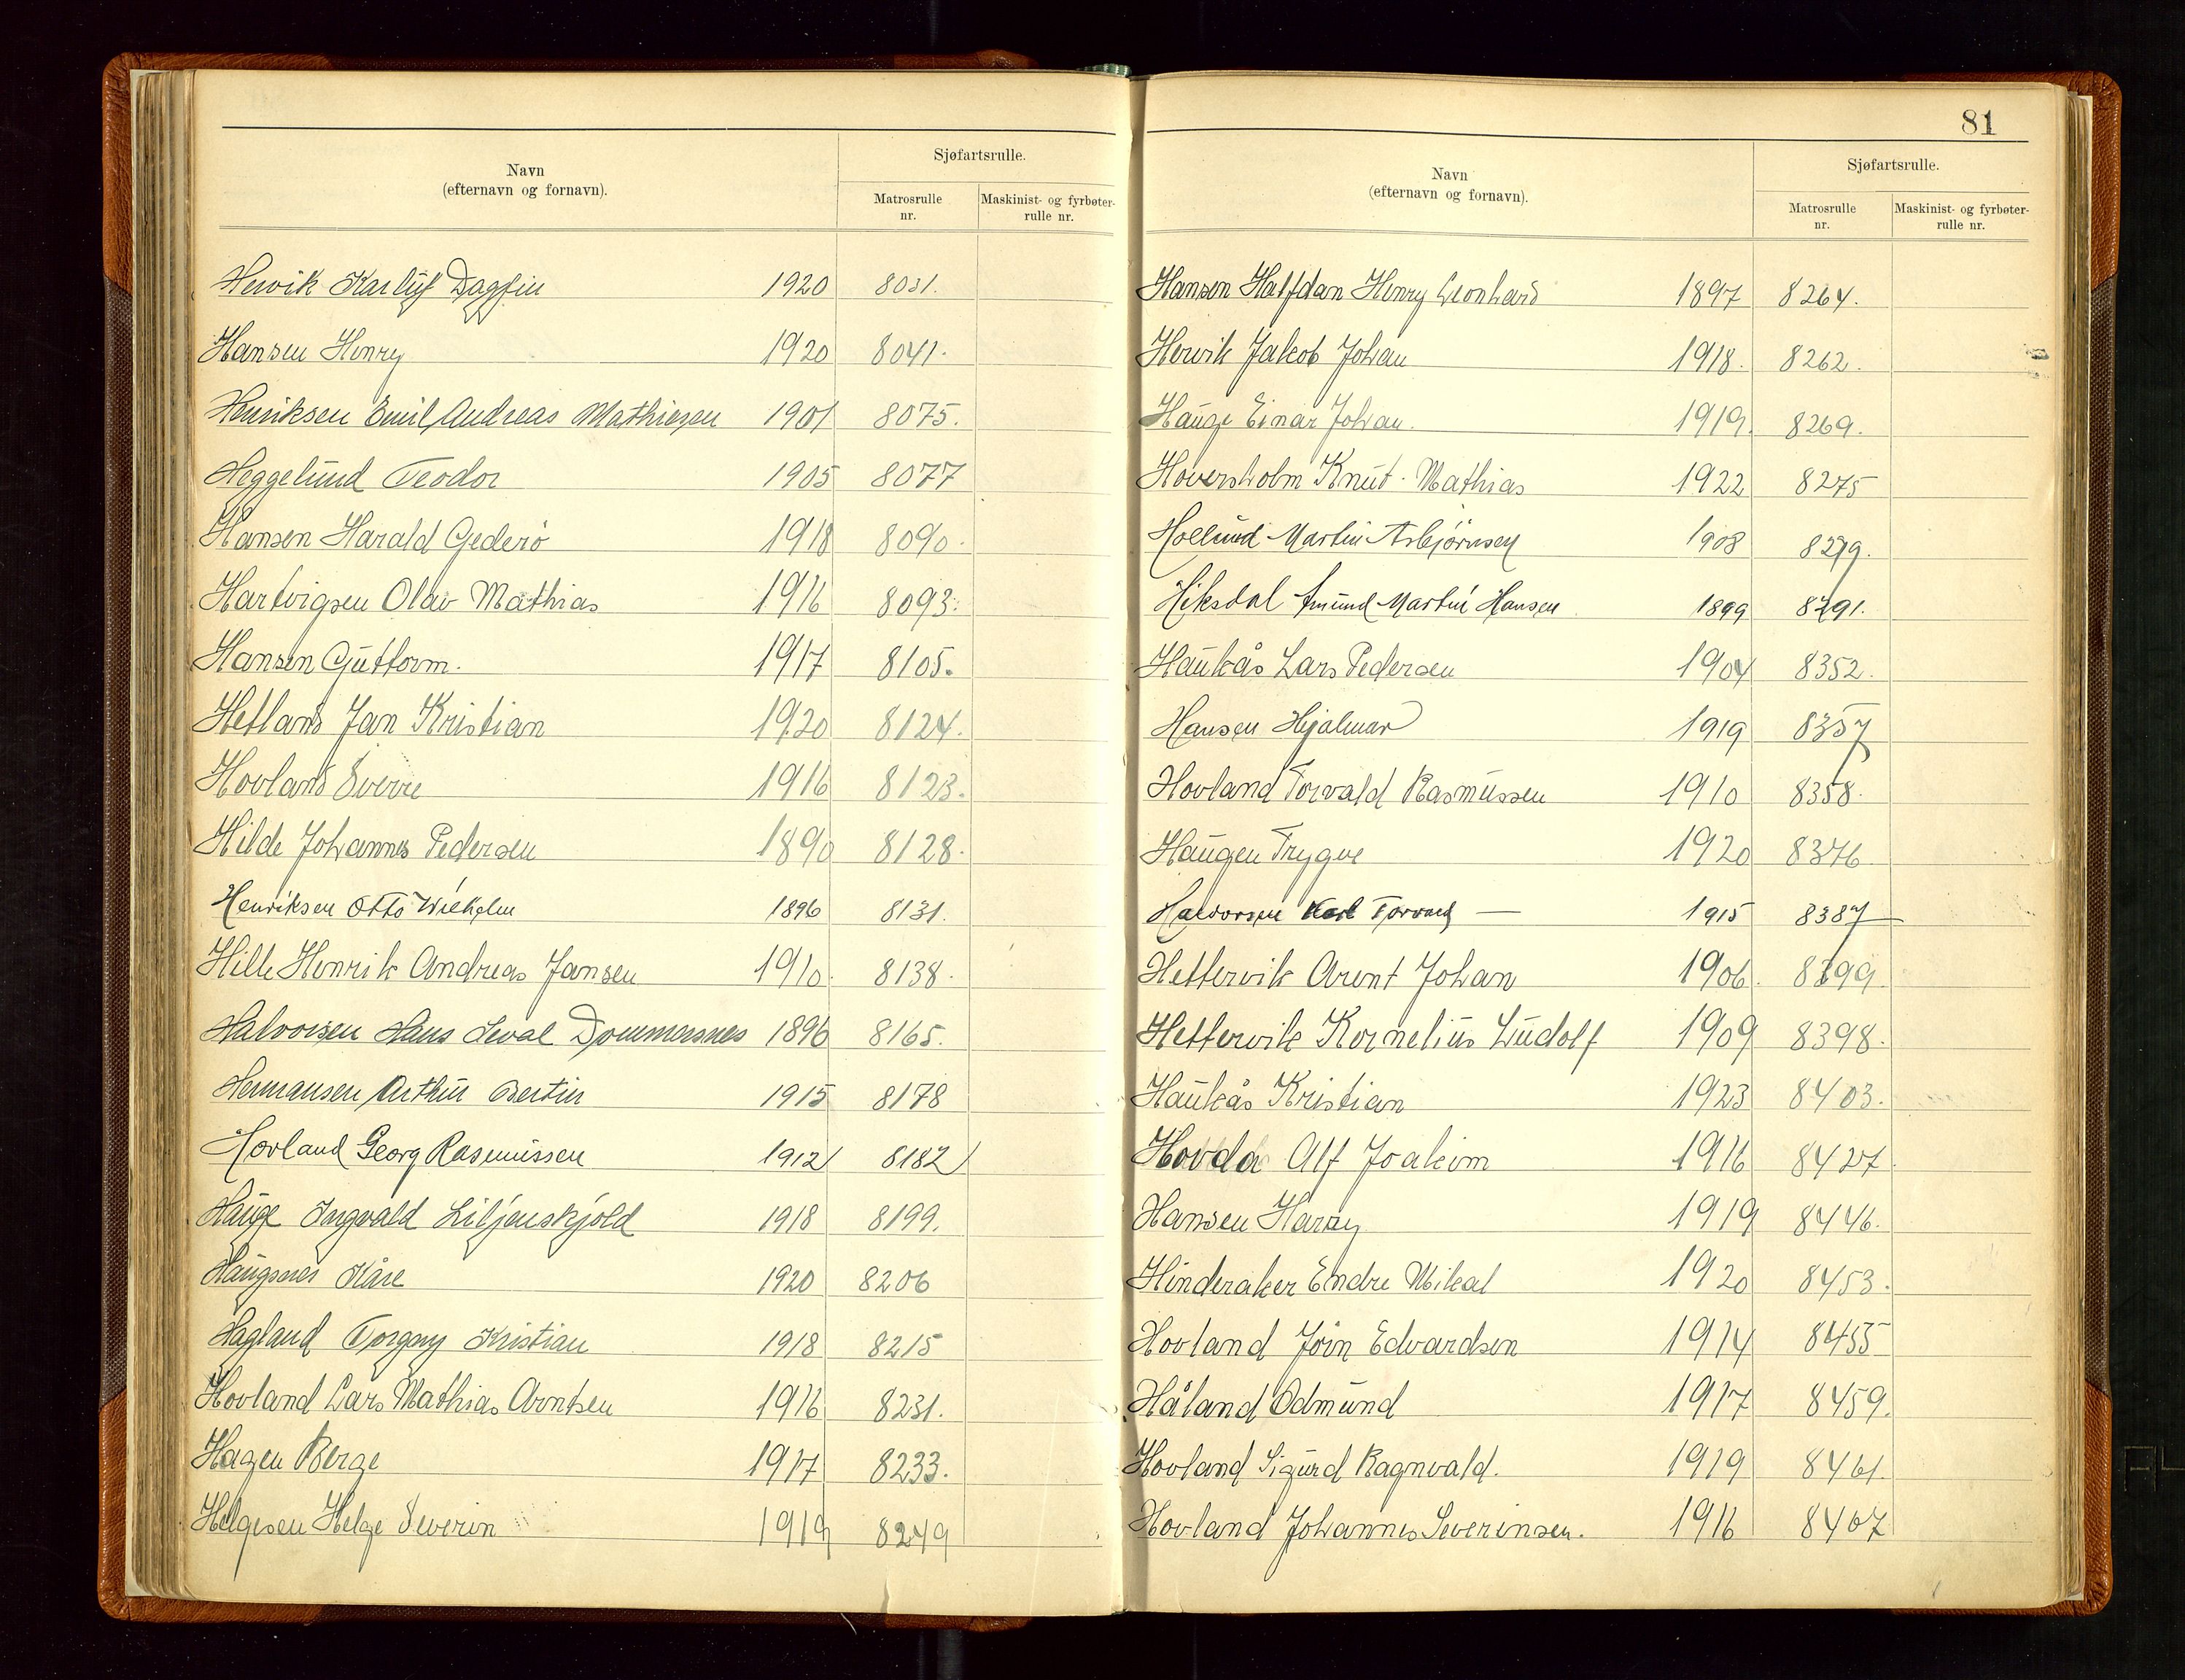 Navn
(efternavn og fornavn).
Sjøfartsrulle.
Matrosrulle nr.
Maskinist- og fyrbøter-rulle nr.
Hervik Karluf Dagfin 1920 8031.
Hansen Henry 1920 8041.
Henriksen Emil Andreas Mathiesen 1901 8075.
Heggelund Teodor 1905 8077
Hansen Harald Gederö 1918 8090.
Hartvigsen Olav Mathias 1916 8093.
Hansen Guttorm. 1917 8105.
Hetland Jan Kristian 1920 8124.
Hovland Sverre 1916 8123.
Hilde Johannes Pedersen 1890 8128.
Henriksen Otto Wilhelm 1896 8131.
Hille Henrik Andreas Jansen 1910. 8138.
Halvorsen Hans Seval Dommersnes 1896 8165.
Hermansen Arthur Bertin 1915 8178
Hovland Georg Rasmussen 1912 8182
Hauge Ingvald Liljenskjold 1918 8199.
Haugsnes Kåre 1920 8206
Hagland Torgny Kristian 1918 8215
Hovland Lars Mathias Arntsen 1916 8231.
Hagen Berge 1917 8233.
Helgesen Helge Severin 1919 8249
81
Navn
(efternavn og fornavn).
Sjøfartsrulle.
Matrosrulle nr.
Maskinist- og fyrbøter-rulle nr.
Hansen Halfdan Henry Leonhard 1897 8264.
Hervik Jakob Johan 1918. 8262.
Hauge Einar Johan. 1919. 8269.
Hoversholm Knut Mathias 1922 8275
Hollund Martin Asbjørnsen 1908 8279.
Hiksdal Amund Martin Hansen 1899 8291.
Haukås Lars Pedersen 1904 8352.
Hansen Hjalmar 1919 8357
Hovland Torvald Rasmussen 1910 8358.
Haugen Trygve 1920 8376
Halvorsen Karl Torvald — 1915 8387
Hettervik Arent Johan 1906. 8399
Hettervik Kornelius Ludolf 1909 8398.
Haukås Kristian 1923 8403.
Hovda Alf Joakim 1916 8427.
Hansen Harry 1919 8446.
Hinderaker Endre Mikal 1920 8453.
Hovland Jøin Edvardsen 1914 8455
Håland Odmund 1917 8459.
Hovland Sigurd Ragnvald. 1919 8461.
Hovland Johannes Severinsen. 1916 8467